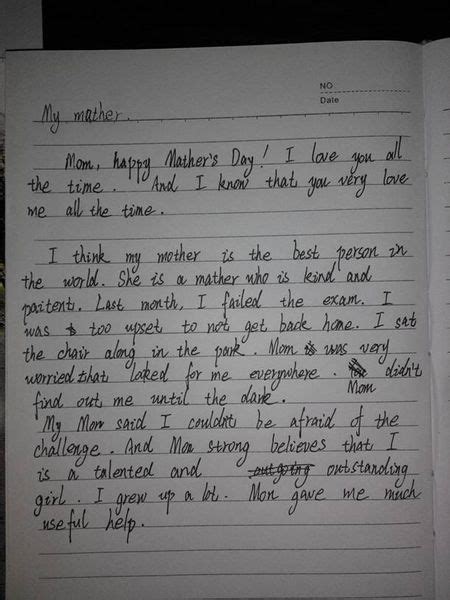 NO
Date
My mather.
Mom, happy Mather's Day! I love you all
the time. And I know that you very love
me all the time.
I think my mother is the best person in
the world. She is a mather who is kind and
paitent. Last month, I failed the exam. I
was too upset to not get back home. I sat
the chair along in the park. Mom was very
worried that loked for me everywhere. Mom didn't
find out me until the dark.
My Mom said I couldn't be afraid of the
challenge. And Mom strong believes that I
is a talented and outstanding
girl. I grew up a lot. Mom gave me much
useful help.